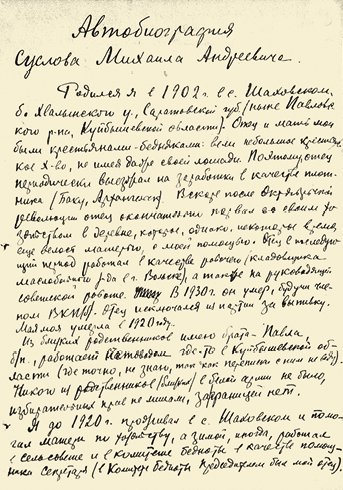 Автобиография
Суслова Михаила Андреевича.
Родился я в 1902 г. в с. Шаховском,
б. Хвалынского у., Саратовской губ. (ныне Павловс-
кого р-на, Куйбышевской области). Отец и мать мои
были крестьянами-бедняками: вели небольшое крестьянс-
кое х-во, не имея даже своей лошади. Поэтому отец
периодически выезжал на заработки в качестве плот-
ника (Баку, Архангельск). Вскоре после Октябрьской
революции отец окончательно порвал со своим хо-
зяйством в деревне, которое, однако, некоторое время
еще велось матерью, с моей помощью. Отец в последую-
щий период работал в качестве рабочего (кладовщика
маслобойного з-да в г. Вольске), а также на руководящей
советской работе. В 1930 г. он умер, будучи чле-
ном ВКП(б). Отец исключался из партии за выпивку.
Мать моя умерла в 1920 году.
Из близких родственников имею брата - Павла
б/п, работает где-то в Куйбышевской об-
ласти (где точно, не знаю, так как переписки с ним не веду).
Никого из родственников (близких) в белой армии не было,
избирательных прав не лишали, за границей нет.
Я до 1920 г. проживал в с. Шаховском и помо-
гал матери по хозяйству, а зимой, иногда, работал
в сельсовете и в комитете бедноты в качестве помощ-
ника секретаря (в Комитете бедноты председателем был мой отец).